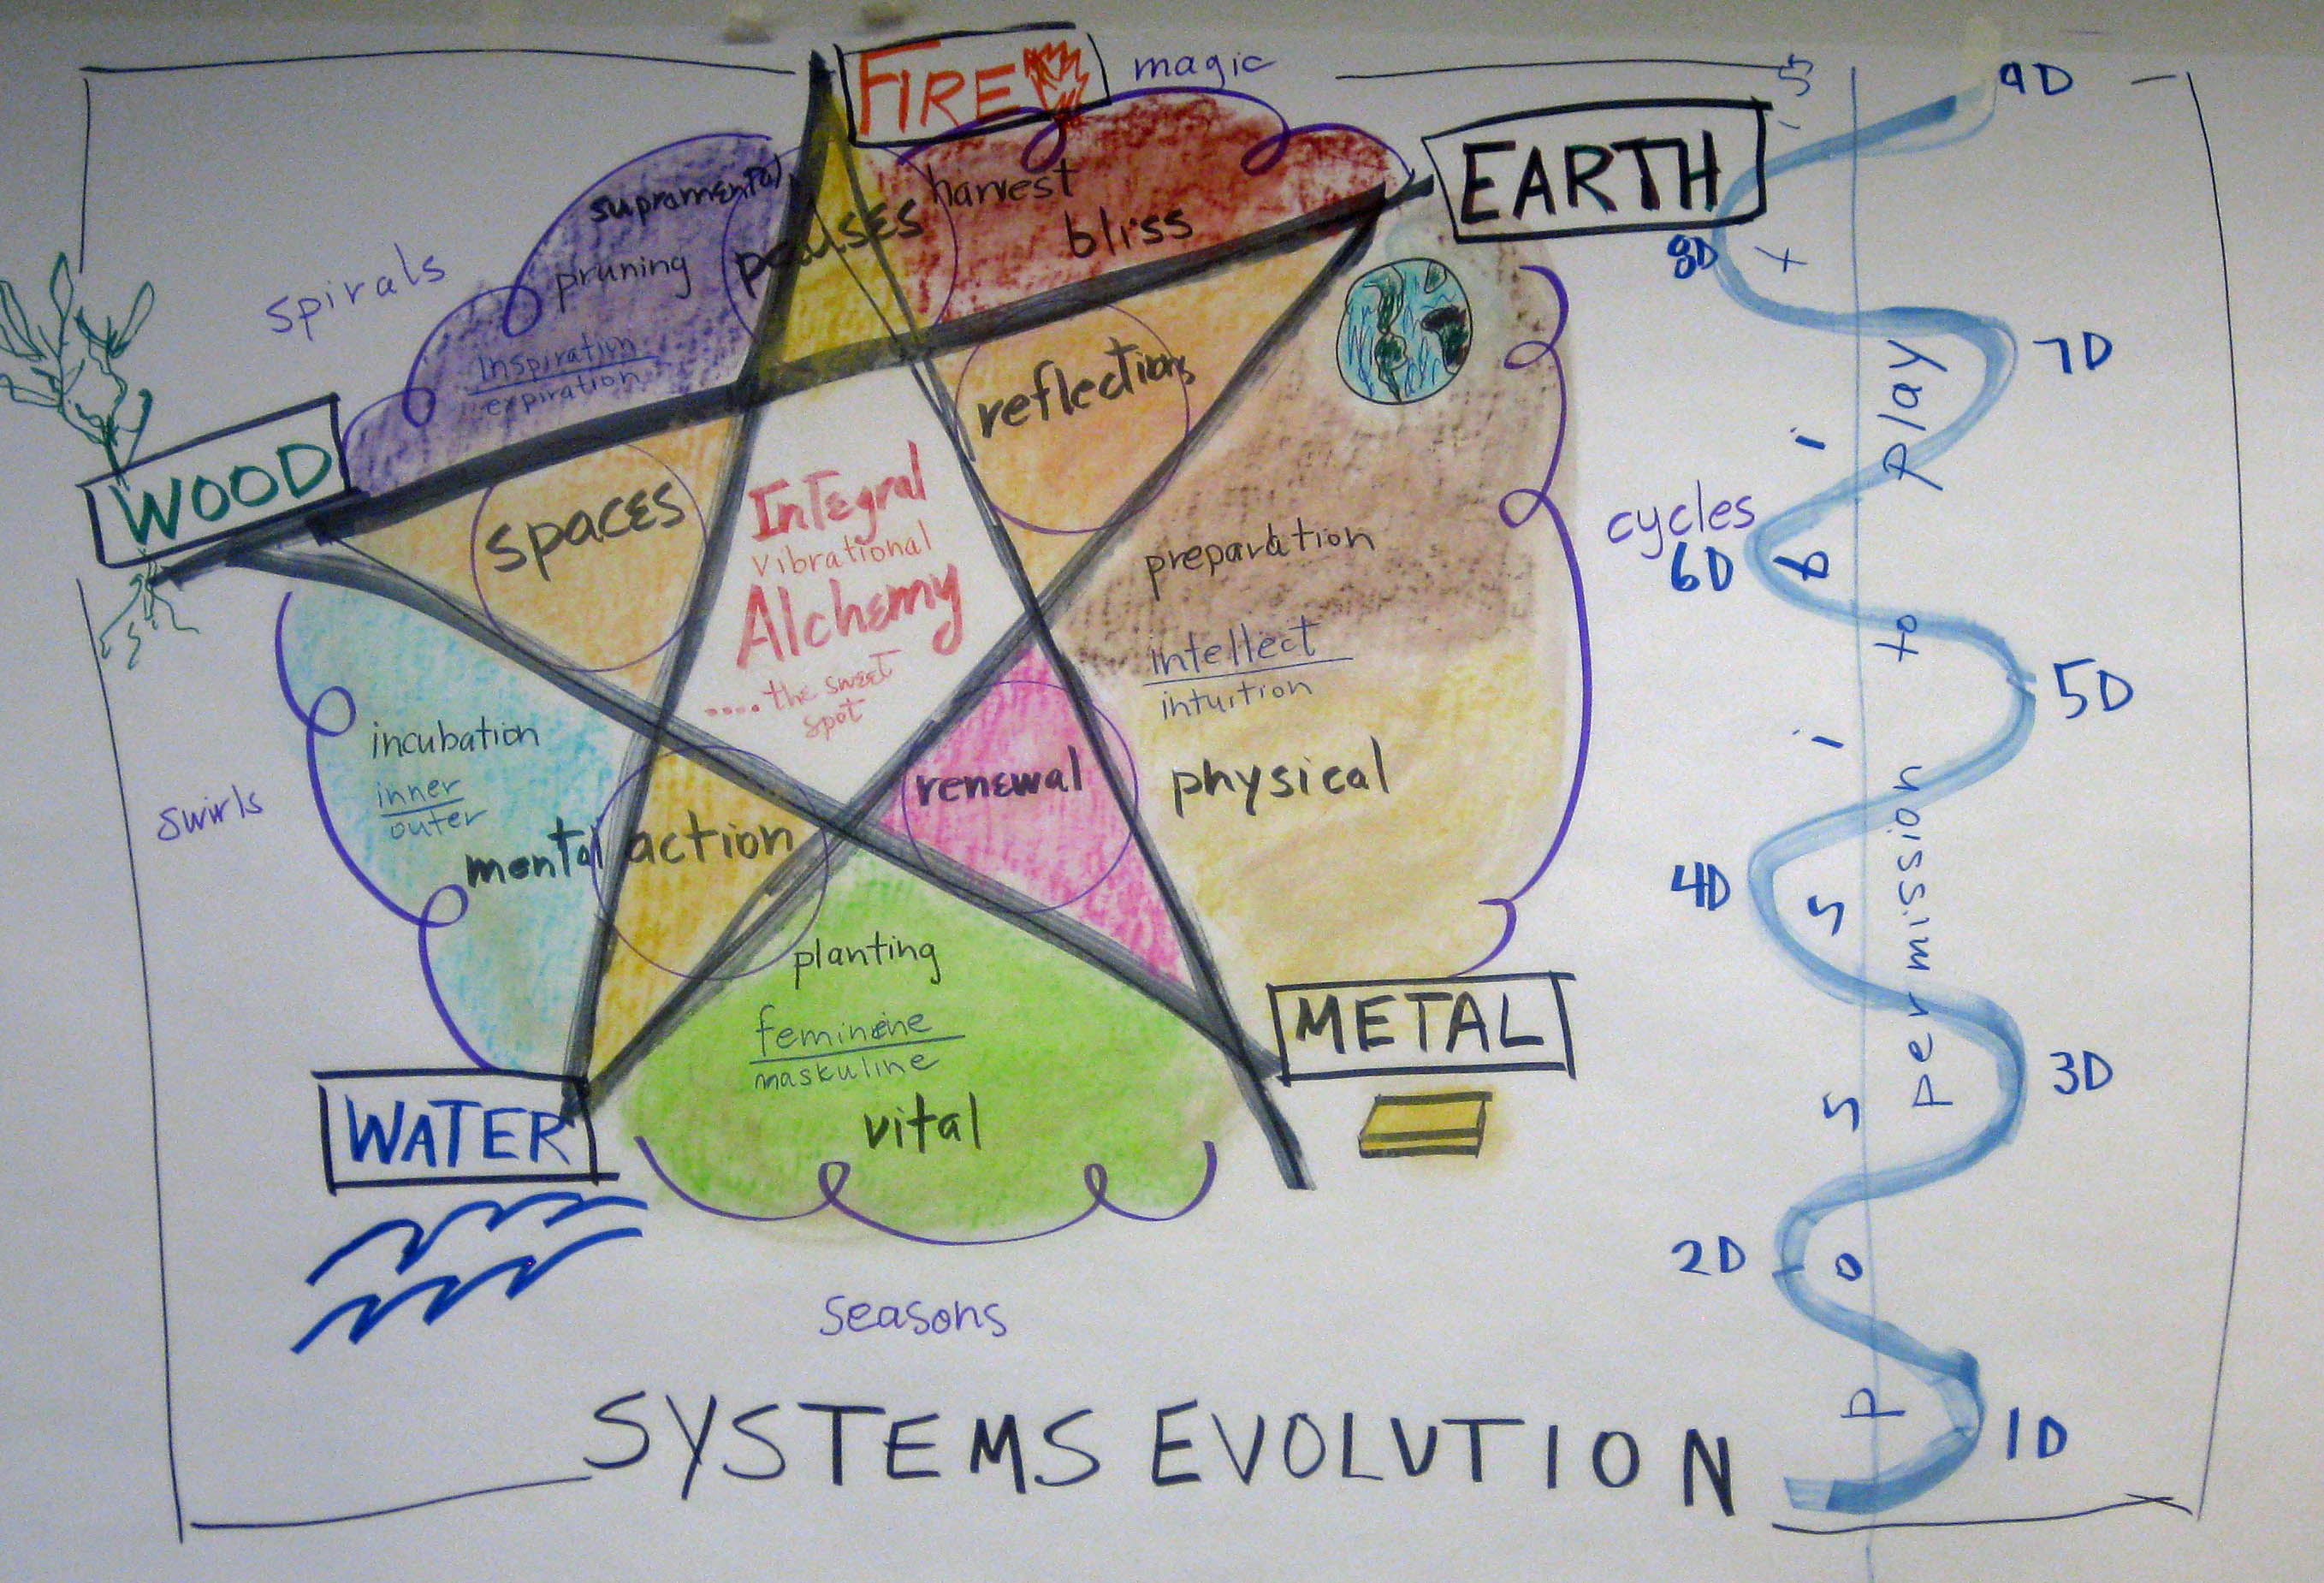 FIRE
magic
9D
EARTH
harvest
bliss
supramental
pauses
pruning
8D
spirals
inspiration
expiration
7D
reflections
WOOD
spaces
Integral
vibrational
Alchemy
.... the sweet
spot
preparation
cycles
6D
intellect
intuition
5D
incubation
inner
outer
swirls
mental
action
renewal
physical
4D
planting
feminine
maskuline
vital
METAL
3D
WATER
2D
seasons
1D
SYSTEMS EVOLUTION
permission to play